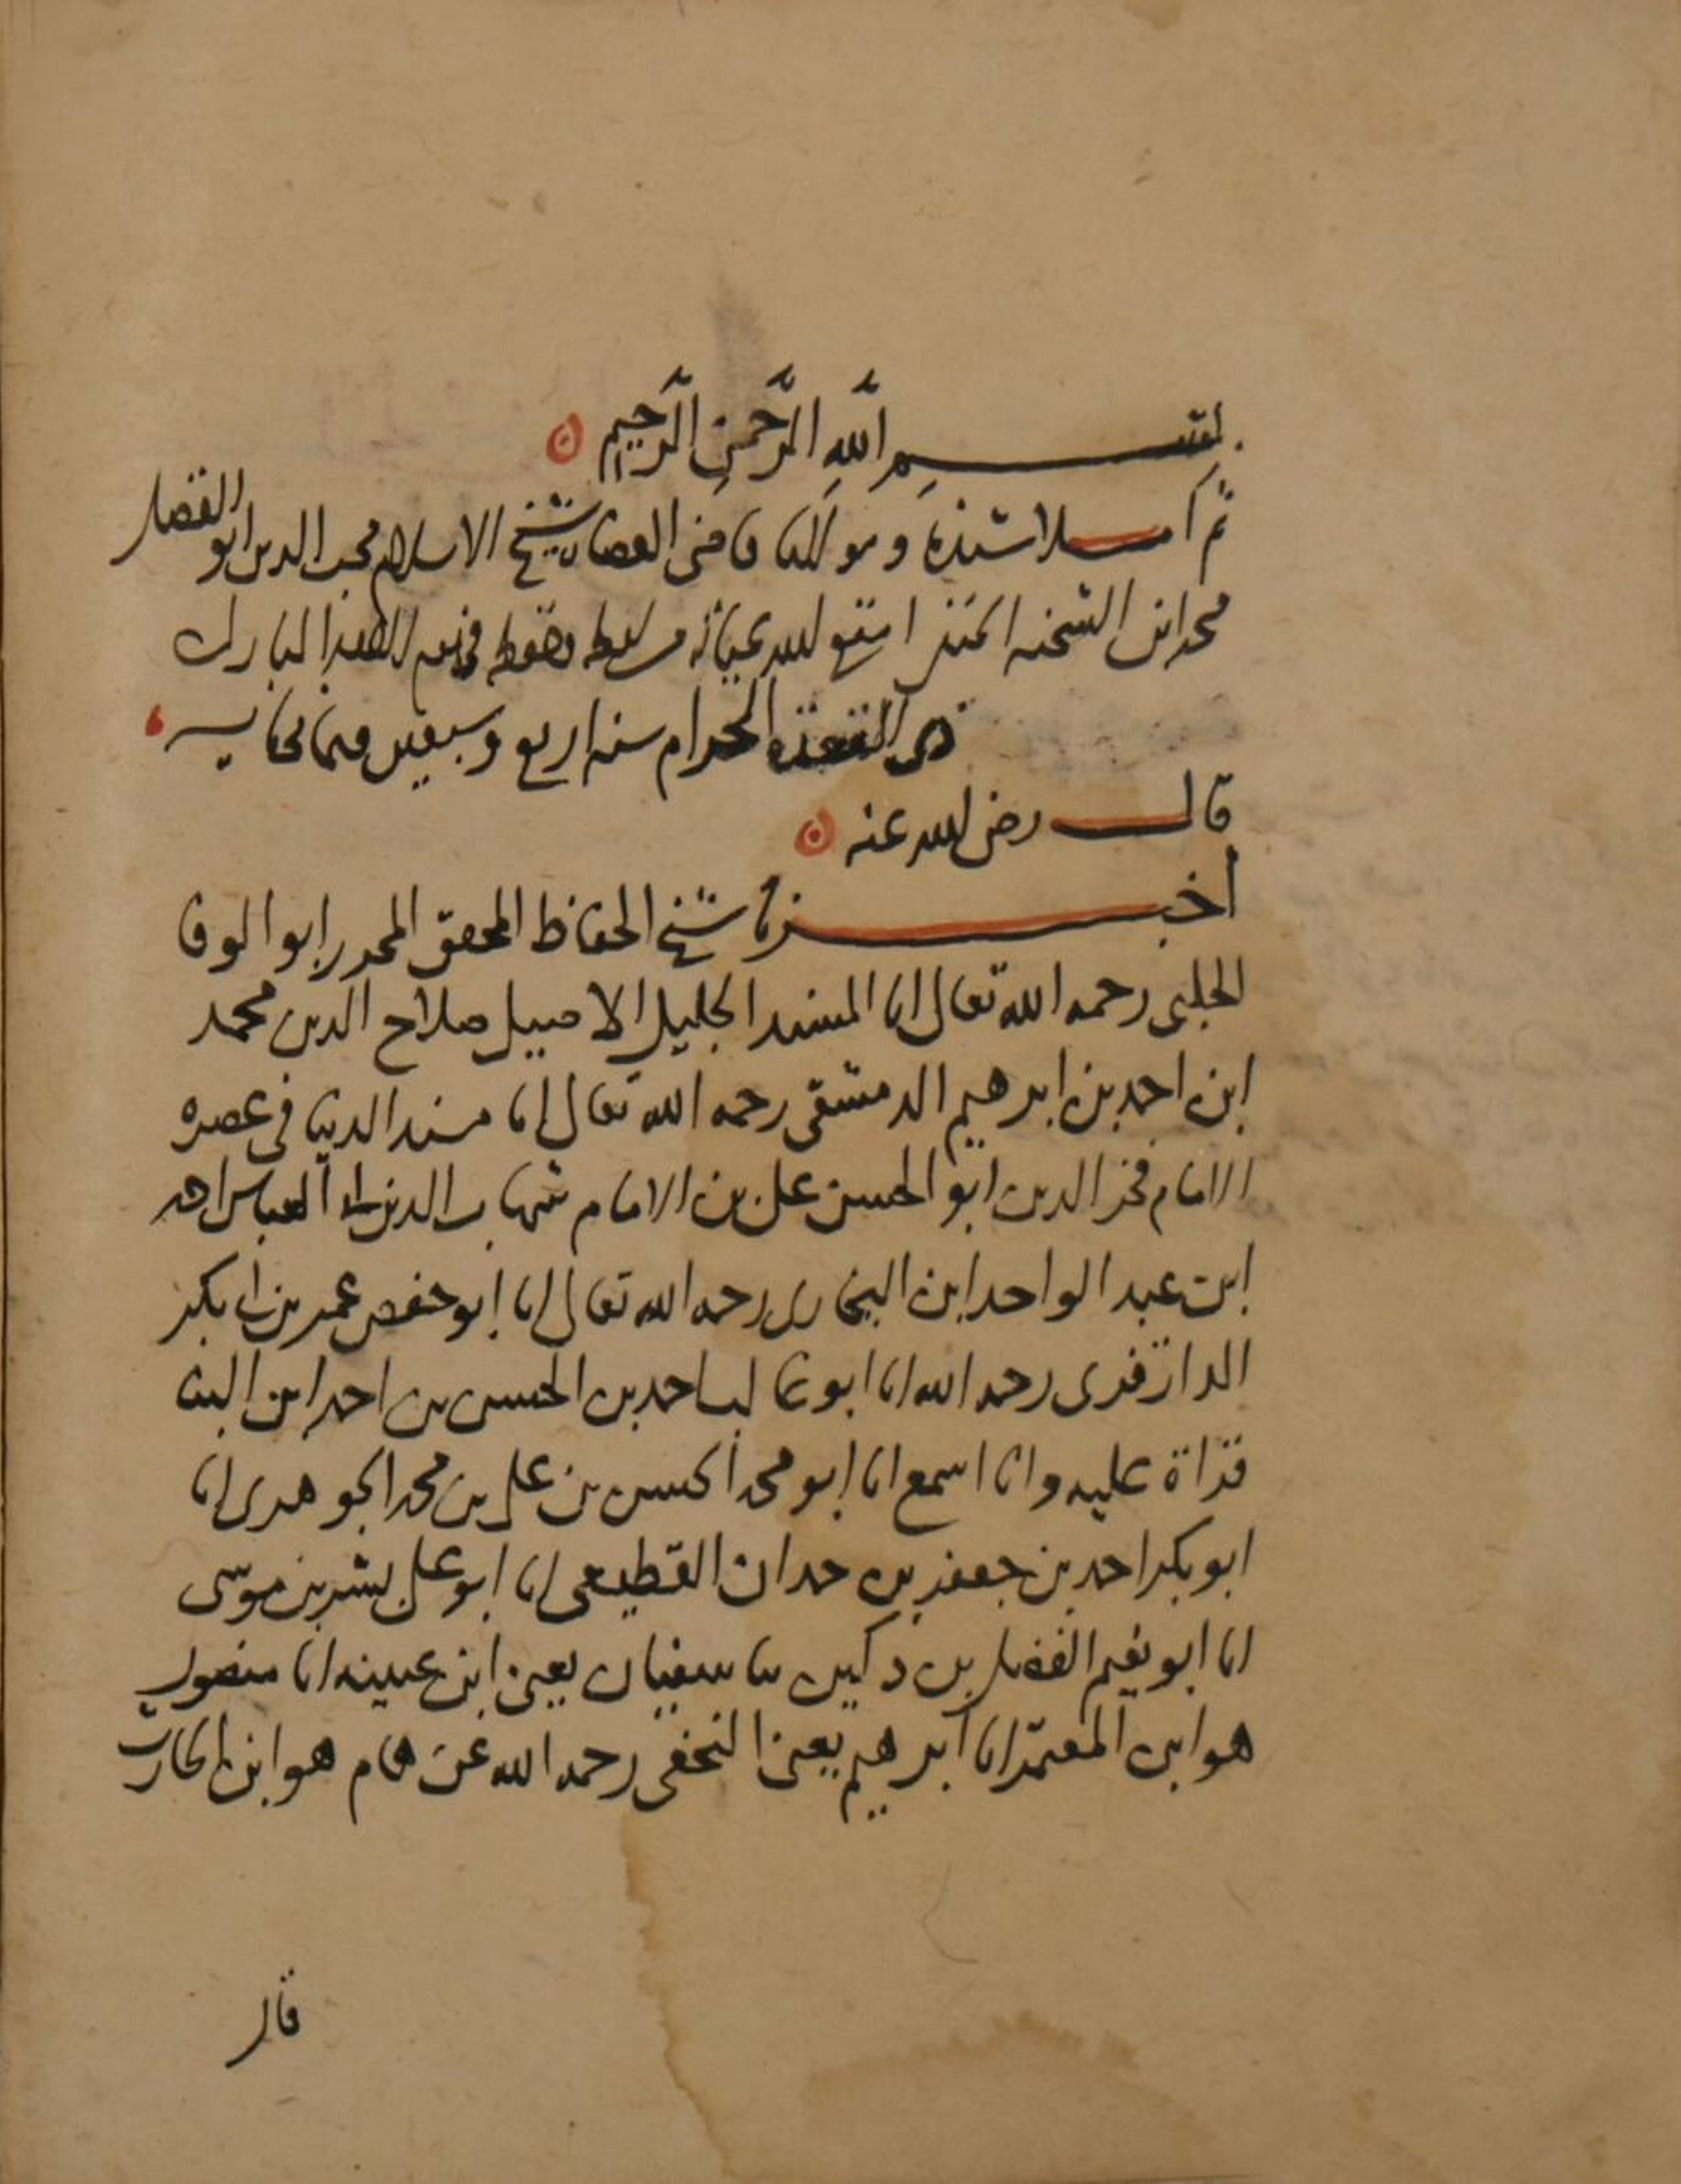 بسم الله الرحمن الرحيم
ثم املا سيدنا ومولانا قاضي القضاة شيخ الاسلام محب الدين ابو الفضل
محمد ابن الشحنه امتع الله بحياته من لفظه وحفظه في يوم المبارك
ذي القعدة الحرام سنه اربع وسبعين وثمانمايه
قال رضي الله عنه
اخبرنا شيخ الحفاظ المحقق المحرر ابو الوفا
الحلبي رحمه الله تعالى انا المسند الجليل الاصيل صلاح الدين محمد
ابن احمد بن ابرهيم الدمشقي رحمه الله تعالى انا مسند الدنيا في عصره
الامام فخر الدين ابو الحسن علي بن الامام شهاب الدين ابي العباس احمد
ابن عبد الواحد ابن البخاري رحمه الله تعالى انا ابو حفص عمر بن ابي بكر
الدارقزي رحمه الله انا ابو غالب احمد بن الحسن بن احمد ابن البنا
قراة عليه وانا اسمع انا ابو محمد الحسن بن علي بن محمد الجوهري انا
ابو بكر احمد بن جعفر بن حمدان القطيعي انا ابو علي بشر بن موسى
انا ابو نعيم الفضل بن دكين نا سفيان يعني ابن عيينه انا منصور
هو ابن المعتمر انا ابرهيم يعني النخعي رحمه الله عن همام هو ابن الحارث
قال